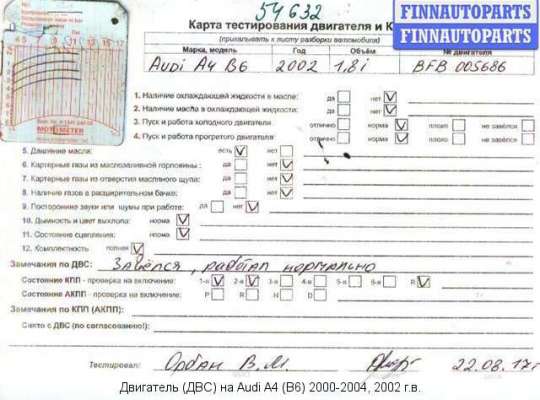 54632
FINNAUTOPARTS
FINNAUTOPARTS
Карта тестирования двигателя и К
(прикалывать к листу разборки автомобиля)
Марка, модель Год Объём № двигателя
Audi A4 B6 2002 1,8 i BFB 005686
MOTOMETER
1. Наличие охлаждающей жидкости в масле: да нет
2. Наличие масла в охлаждающей жидкости: да нет
3. Пуск и работа холодного двигателя отлично норма плохо не завёлся
4. Пуск и работа прогретого двигателя: отлично норма плохо не завёлся
5. Давление масла: есть нет
6. Картерные газы из маслозаливной горловины: да нет
7. Картерные газы из отверстия масляного щупа: да нет
8. Наличие газов в расширительном бачке: да нет
9. Посторонние звуки или шумы при работе: да нет
10. Дымность и цвет выхлопа: норма
11. Состояние сцепления: норма
12. Комплектность полная
Замечания по ДВС: Завёлся, работал нормально
Состояние КПП - проверка на включение: 1-я 2-я 3-я 4-я 5-я 6-я R
Состояние АКПП - проверка на включение: P R N D
Замечания по КПП (АКПП):
Снято с ДВС (по согласованию!):
Тестировал: Орбан В.М. 22.08.17г
Двигатель (ДВС) на Audi A4 (B6) 2000-2004, 2002 г.в.